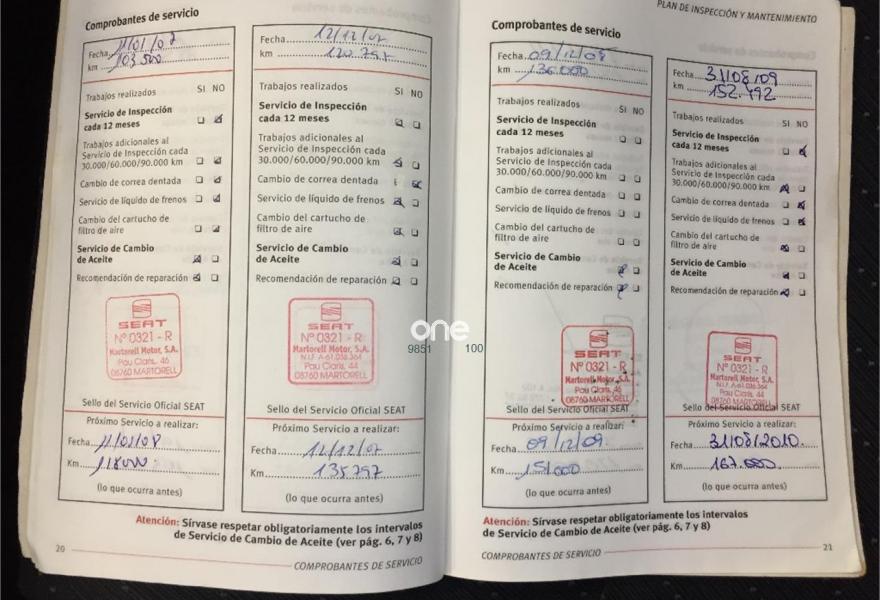 Comprobantes de servicio
Fecha 11/01/07
km 103.500
Trabajos realizados SI NO
Servicio de Inspección
cada 12 meses
Trabajos adicionales al
Servicio de Inspección cada
30.000/60.000/90.000 km
Cambio de correa dentada
Servicio de líquido de frenos
Cambio del cartucho de
filtro de aire
Servicio de Cambio
de Aceite
Recomendación de reparación
SEAT
Nº 0321 - R
Martorell Motor, S.A.
Pau Claris, 46
08760 MARTORELL
Sello del Servicio Oficial SEAT
Próximo Servicio a realizar:
Fecha 11/01/08
Km 118000
(lo que ocurra antes)
Fecha 12/12/07
km 120.797
Trabajos realizados SI NO
Servicio de Inspección
cada 12 meses
Trabajos adicionales al
Servicio de Inspección cada
30.000/60.000/90.000 km
Cambio de correa dentada
Servicio de líquido de frenos
Cambio del cartucho de
filtro de aire
Servicio de Cambio
de Aceite
Recomendación de reparación
SEAT
Nº 0321 - R
Martorell Motor, S.A.
N.I.F. A-61.036.364
Pau Claris, 44
08760 MARTORELL
Sello del Servicio Oficial SEAT
Próximo Servicio a realizar:
Fecha 12/12/07
Km 135.797
(lo que ocurra antes)
Atención: Sírvase respetar obligatoriamente los intervalos
de Servicio de Cambio de Aceite (ver pág. 6, 7 y 8)
20
COMPROBANTES DE SERVICIO
one
9851 100
PLAN DE INSPECCIÓN Y MANTENIMIENTO
Comprobantes de servicio
Fecha 09/12/08
km 136.000
Trabajos realizados SI NO
Servicio de Inspección
cada 12 meses
Trabajos adicionales al
Servicio de Inspección cada
30.000/60.000/90.000 km
Cambio de correa dentada
Servicio de líquido de frenos
Cambio del cartucho de
filtro de aire
Servicio de Cambio
de Aceite
Recomendación de reparación
SEAT
Nº 0321 - R
Martorell Motor, S.A.
Pau Claris, 46
08760 MARTORELL
Sello del Servicio Oficial SEAT
Próximo Servicio a realizar:
Fecha 09/12/09.
Km 151.000
(lo que ocurra antes)
Fecha 31/08/09
km 152.492
Trabajos realizados SI NO
Servicio de Inspección
cada 12 meses
Trabajos adicionales al
Servicio de Inspección cada
30.000/60.000/90.000 km
Cambio de correa dentada
Servicio de líquido de frenos
Cambio del cartucho de
filtro de aire
Servicio de Cambio
de Aceite
Recomendación de reparación
SEAT
Nº 0321 - R
Martorell Motor, S.A.
N.I.F. A-61.036.364
Pau Claris, 44
08760 MARTORELL
Sello del Servicio Oficial SEAT
Próximo Servicio a realizar:
Fecha 31/08/2010.
Km 167.000
(lo que ocurra antes)
Atención: Sírvase respetar obligatoriamente los intervalos
de Servicio de Cambio de Aceite (ver pág. 6, 7 y 8)
COMPROBANTES DE SERVICIO
21